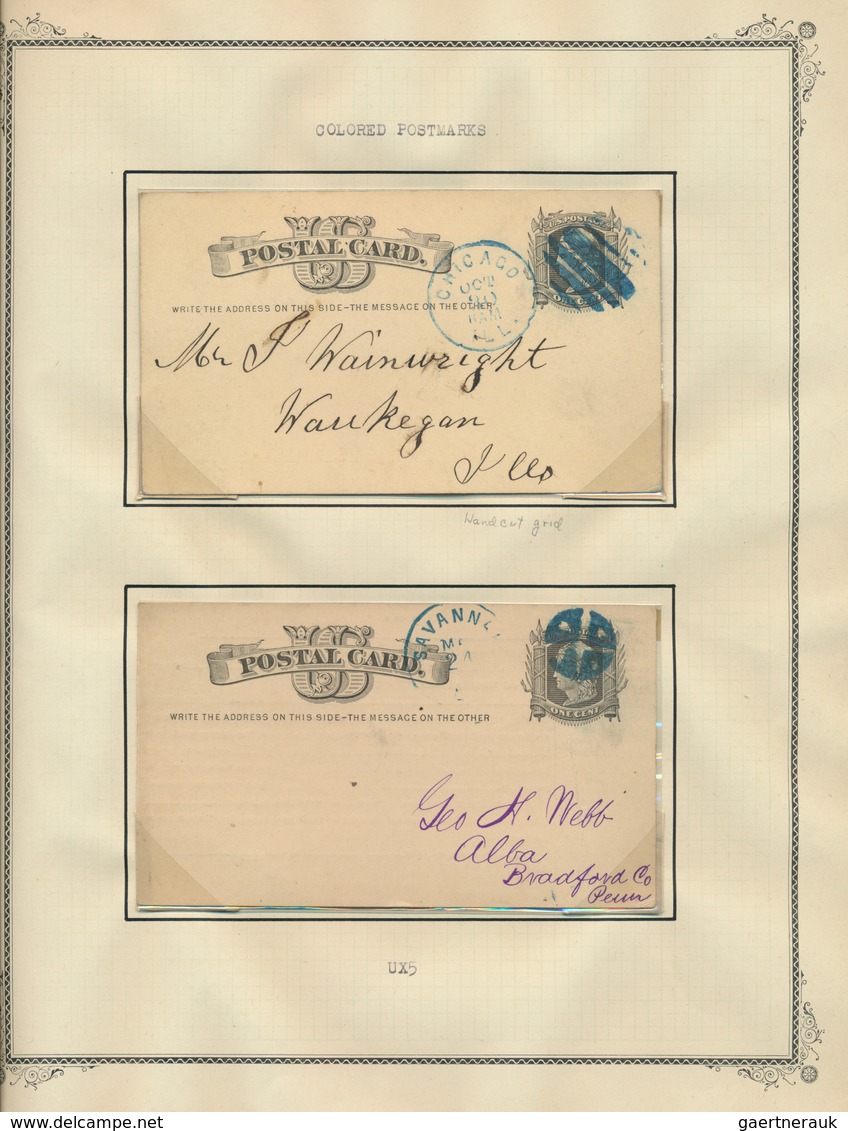 COLORED POSTMARKS
US
POSTAL CARD.
WRITE THE ADDRESS ON THIS SIDE-THE MESSAGE ON THE OTHER
CHICAGO
OCT
AM
ILL.
U.S. POSTAGE
ONE CENT
Mr J Wainwright
Waukegan
Ills
Handcut grid
US
POSTAL CARD.
WRITE THE ADDRESS ON THIS SIDE-THE MESSAGE ON THE OTHER
SAVANN
ONE CENT
Geo H. Webb
Alba
Bradford Co
Penn
UX5
DELCAMPE.NET
gaertnerauk